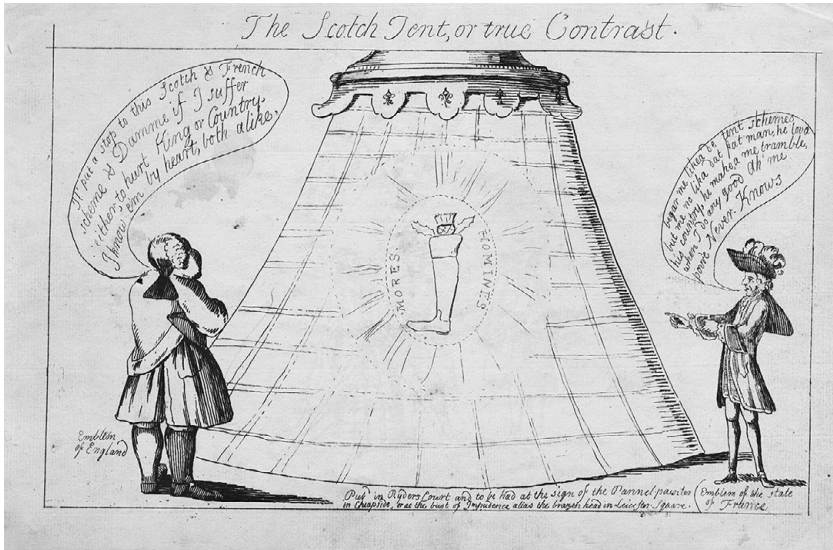 The Scotch Tent, or true Contrast.
I'l put a stop to this Scotch & French
scheme & Damme if I suffer
either, to hurt King or Country.
I know 'em by heart, both alike.
begar me likea de tent schemes
but me no lika dat fat man, he lova
his country, he makea me tramble,
when I do any good Ah' me
Never Knows
MORES
HOMINES
Emblem
of England
Pubd in Ryders Court and to be had at the sign of the Pannel painter
in Cheapside, or at the bust of Impudence alias the brazen head in Leicester Square.
(Emblem of the state
of France